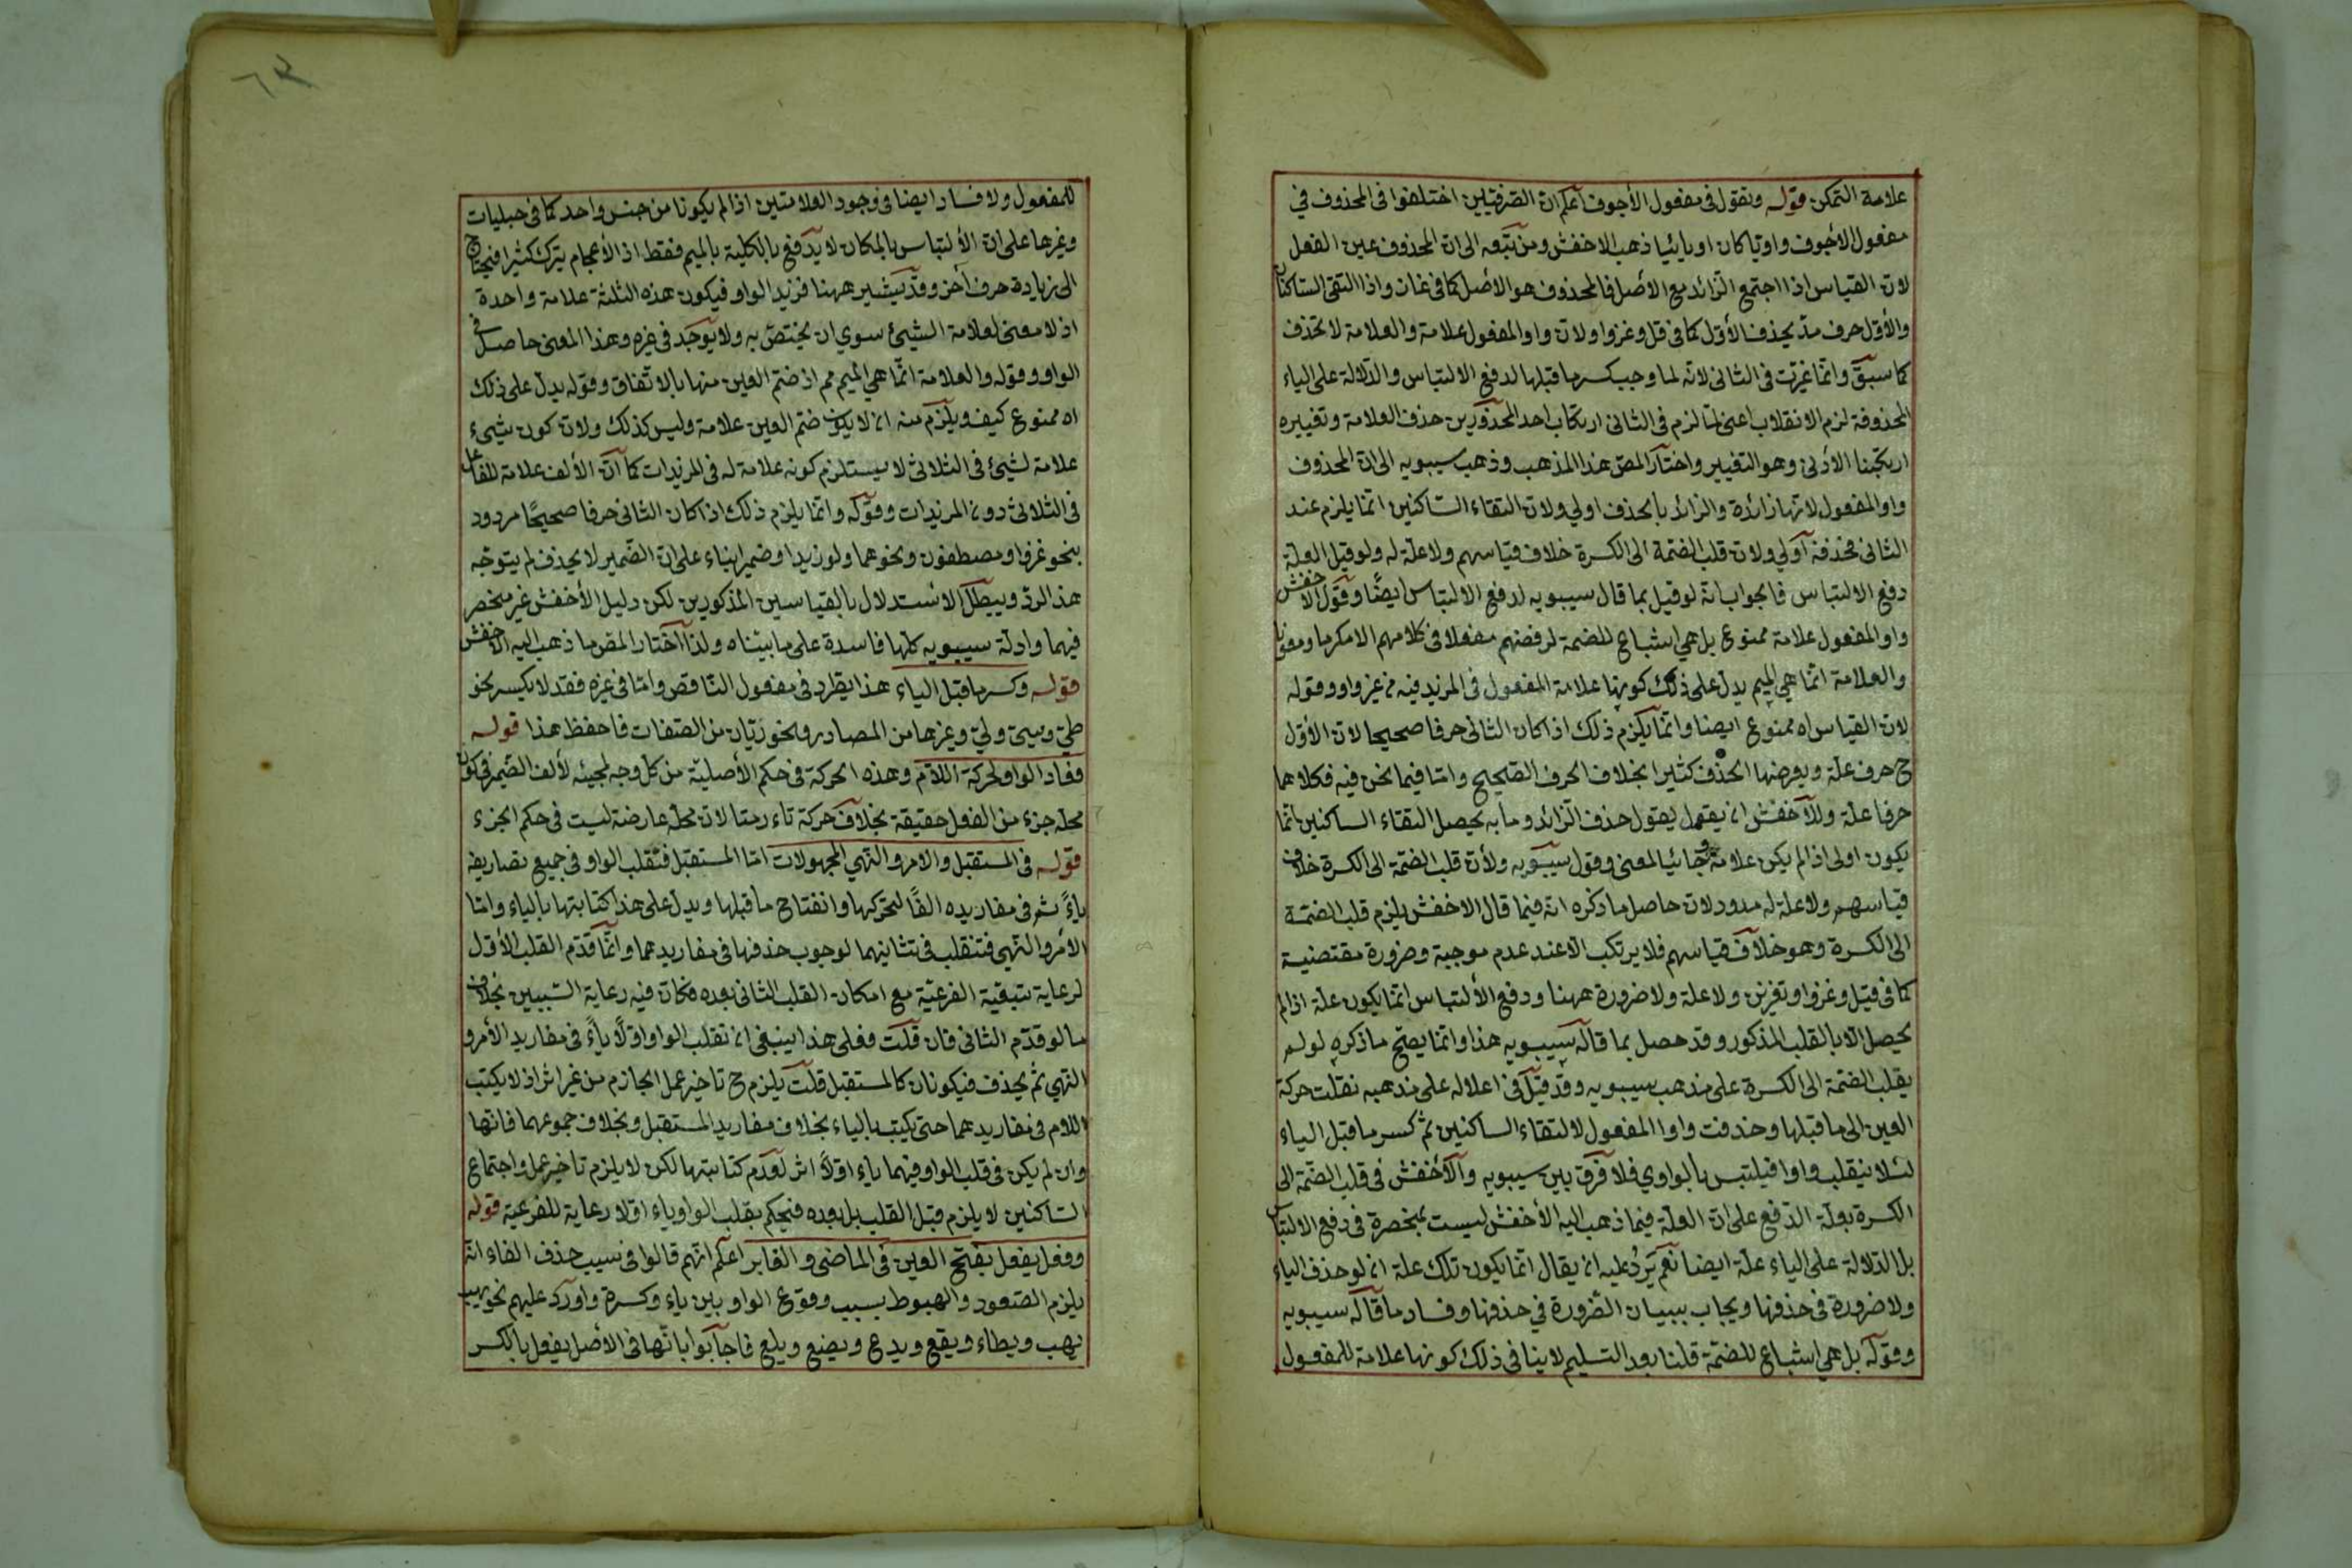 علامة التمكن قوله ونقول فى مفعول الأجوف اعلم ان الصرفيين اختلفوا فى المحذوف في
مفعول الاجوف واويّا كان او يائيا ذهب الاخفش ومن تبعه الى ان المحذوف عين الفعل
لان القياس اذا اجتمع الزائد مع الأصل فالمحذوف هو الأصل كما فى غاز واذا التقى الساكنان
والأوّل حرف مدّ يحذف الأوّل كما فى قل وغزوا ولان واو المفعول علامة والعلامة لا تحذف
كما سبق وانما غيّرت فى الثانى لانه لما وجب كسر ما قبلها لدفع الالتباس والدلالة على الياء
المحذوفة لزم الانقلاب اعنى لمّا لزم فى الثانى ارتكاب احد المحذورين حذف العلامة وتغييره
ارتكبنا الأدنى وهو التغيير واختار المص هذا المذهب وذهب سيبويه الى ان المحذوف
واو المفعول لانها زائدة والزائد بالحذف اولي ولان التقاء الساكنين انما يلزم عند
الثانى فحذفه أولي ولان قلب الضمة الى الكسرة خلاف قياسهم ولا علة له ولو قيل العلة
دفع الالتباس فالجواب انه لو قيل بما قال سيبويه لدفع الالتباس ايضًا وقول الاخفش
واو المفعول علامة ممنوع بل هي اشباع للضمة لرفضهم مفعلا فى كلامهم الا مكرما ومعونا
والعلامة انّما هي الميم يدل على ذلك كونها علامة المفعول فى المزيد فيه من غير واو وقوله
لان القياس اه ممنوع ايضا وانما يلزم ذلك اذا كان الثانى حرفا صحيحا لان الأوّل
ح حرف علة ويعرضها الحذف كثيرا بخلاف الحرف الصحيح وامّا فيما نحن فيه فكلاهما
حرفا علة وللأخفش ان يقول حذف الزائد وما به يحصل التقاء الساكنين انّما
يكون اولى اذا لم يكن علامة وجائيا لمعنى وقول سيبويه ولأن قلب الضمّة الى الكسرة خلاف
قياسهم ولا علة له مردود لان حاصل ما ذكره انه فيما قال الاخفش يلزم قلب الضمّة
الى الكسرة وهو خلاف قياسهم فلا يرتكب الّا عند عدم موجبة وضرورة مقتضية
كما فى قيل وغزوا وتغزين ولا علة ولا ضرورة ههنا ودفع الألتباس انما يكون علة اذا لم
يحصل الّا بالقلب المذكور وقد حصل بما قاله سيبويه هذا وانما يصح ما ذكره لو لم
يقلب الضمة الى الكسرة على مذهب سيبويه وقد قيل فى اعلاله على مذهبه نقلت حركة
العين الى ما قبلها وحذفت واو المفعول لالتقاء الساكنين ثم كسر ما قبل الياء
لئلا ينقلب واوا فيلتبس بالواوي فلا فرق بين سيبويه والأخفش فى قلب الضّمة الى
الكسرة بعلة الدّفع على ان العلة فيما ذهب اليه الأخفش ليست بمنحصرة فى دفع الالتباس
بل الدّلالة على الياء علّة ايضا نعم يَردُ عليه ان يقال انما يكون تلك علة ان لو حذف الياء
ولا ضرورة فى حذفها ويجاب ببيان الضّرورة في حذفها وفساد ما قاله سيبويه
وقوله بل هي اشباع للضمّة قلنا بعد التسليم لا ينافى ذلك كونها علامة للمفعول
٦٣
للمفعول ولا فساد ايضا فى وجود العلامتين اذا لم يكونا من جنس واحد كما فى حبليات
وغيرها على ان الألتباس بالمكان لا يندفع بالكلية بالميم فقط اذ الأعجام يترك كثيرا فيحتاج
الى زيادة حرف أخر وقد تيسّر ههنا فزيد الواو فيكون هذه الثلثة علامة واحدة
اذ لا معنى لعلامة الشيئ سوي ان يختصّ به ولا يوجد فى غيره وهذا المعنى حاصل فى
الواو وقوله والعلامة انّما هي الميم مم اذ ضم العين منها بالاتّفاق وقوله يدل على ذلك
اه ممنوع كيف ويلزم منه ان لا يكون ضم العين علامة وليس كذلك ولان كون شيء
علامة لشيئ فى الثلاثى لا يستلزم كونه علامة له فى المزيدات كما أن الألف علامة للفاعل
فى الثلاثى دون المزيدات وقوله وانّما يلزم ذلك اذا كان الثانى حرفا صحيحًا مردود
بنحو غزوا ومصطفون ونحوهما ولو زيد او ضمير بناء على ان الضّمير لا يحذف لم يتوجّه
هذا الردّ ويبطل الاستدلال بالقياسين المذكورين لكن دليل الأخفش غير منحصر
فيهما وادلّة سيبويه كلّها فاسدة على ما بيّناه ولذا اختار المص ما ذهب اليه الاخفش
قوله وكسر ما قبل الياء هذا يطّرد فى مفعول النّاقص وامّا فى غيره فقد لا يكسر نحو
طيّ وسيّ وليّ وغيرها من المصادر ونحو ريّان من الصّفات فاحفظ هذا قوله
فعاد الواو لحركة اللام وهذه الحركة فى حكم الأصليّة من كل وجه لمجيئه لألف الضّمير فيكون
محله جزء من الفعل حقيقة بخلاف حركة تاء رمتا لان محلّه عارضة ليست فى حكم الجزء
قوله فى المستقبل والامر والنهي المجهولات امّا المستقبل فتقلب الواو فى جميع تصاريفه
ياءً ثم فى مفاريده الفًا لتحركها وانفتاح ما قبلها ويدل على هذا كتابتها بالياء وامّا
الأمر والنّهي فتنقلب فى تثانيهما لوجوب حذفها فى مفاريدهما وانّما قدّم القلب الأوّل
لرعاية تبعيّة الفرعيّة مع امكان القلب الثانى بعده فكان فيه رعاية السّببين بخلاف
ما لو قدّم الثانى فان قلت فعلى هذا ينبغى ان تقلب الواو اوّلًا ياءً فى مفاريد الأمر و
النّهي ثم يحذف فيكونان كالمستقبل قلت يلزم ح تاخير عمل الجازم من غير اثر اذ لا يكتب
اللام فى مفاريدهما حتى يكتب بالياء بخلاف مفاريد المستقبل وبخلاف جموعهما فانّها
وان لم يكن فى قلب الواو فيهما ياء اوّلًا اثر لعدم كتابتها لكن لا يلزم تاخير عمل واجتماع
السّاكنين لا يلزم قبل القلب بل بعده فيحكم بقلب الواو ياء اوّلا رعاية للفرعيّة قوله
وفعل يفعل بفتح العين فى الماضى والغابر اعلم انّهم قالوا فى سبب حذف الفاء انّه
يلزم الصّعود والهبوط بسبب وقوع الواو بين ياء وكسرة واورد عليهم نحو يهب
يهب ويطاء ويقع ويدع ويضع ويلع فاجابوا بانّها فى الأصل يفعل بالكسر